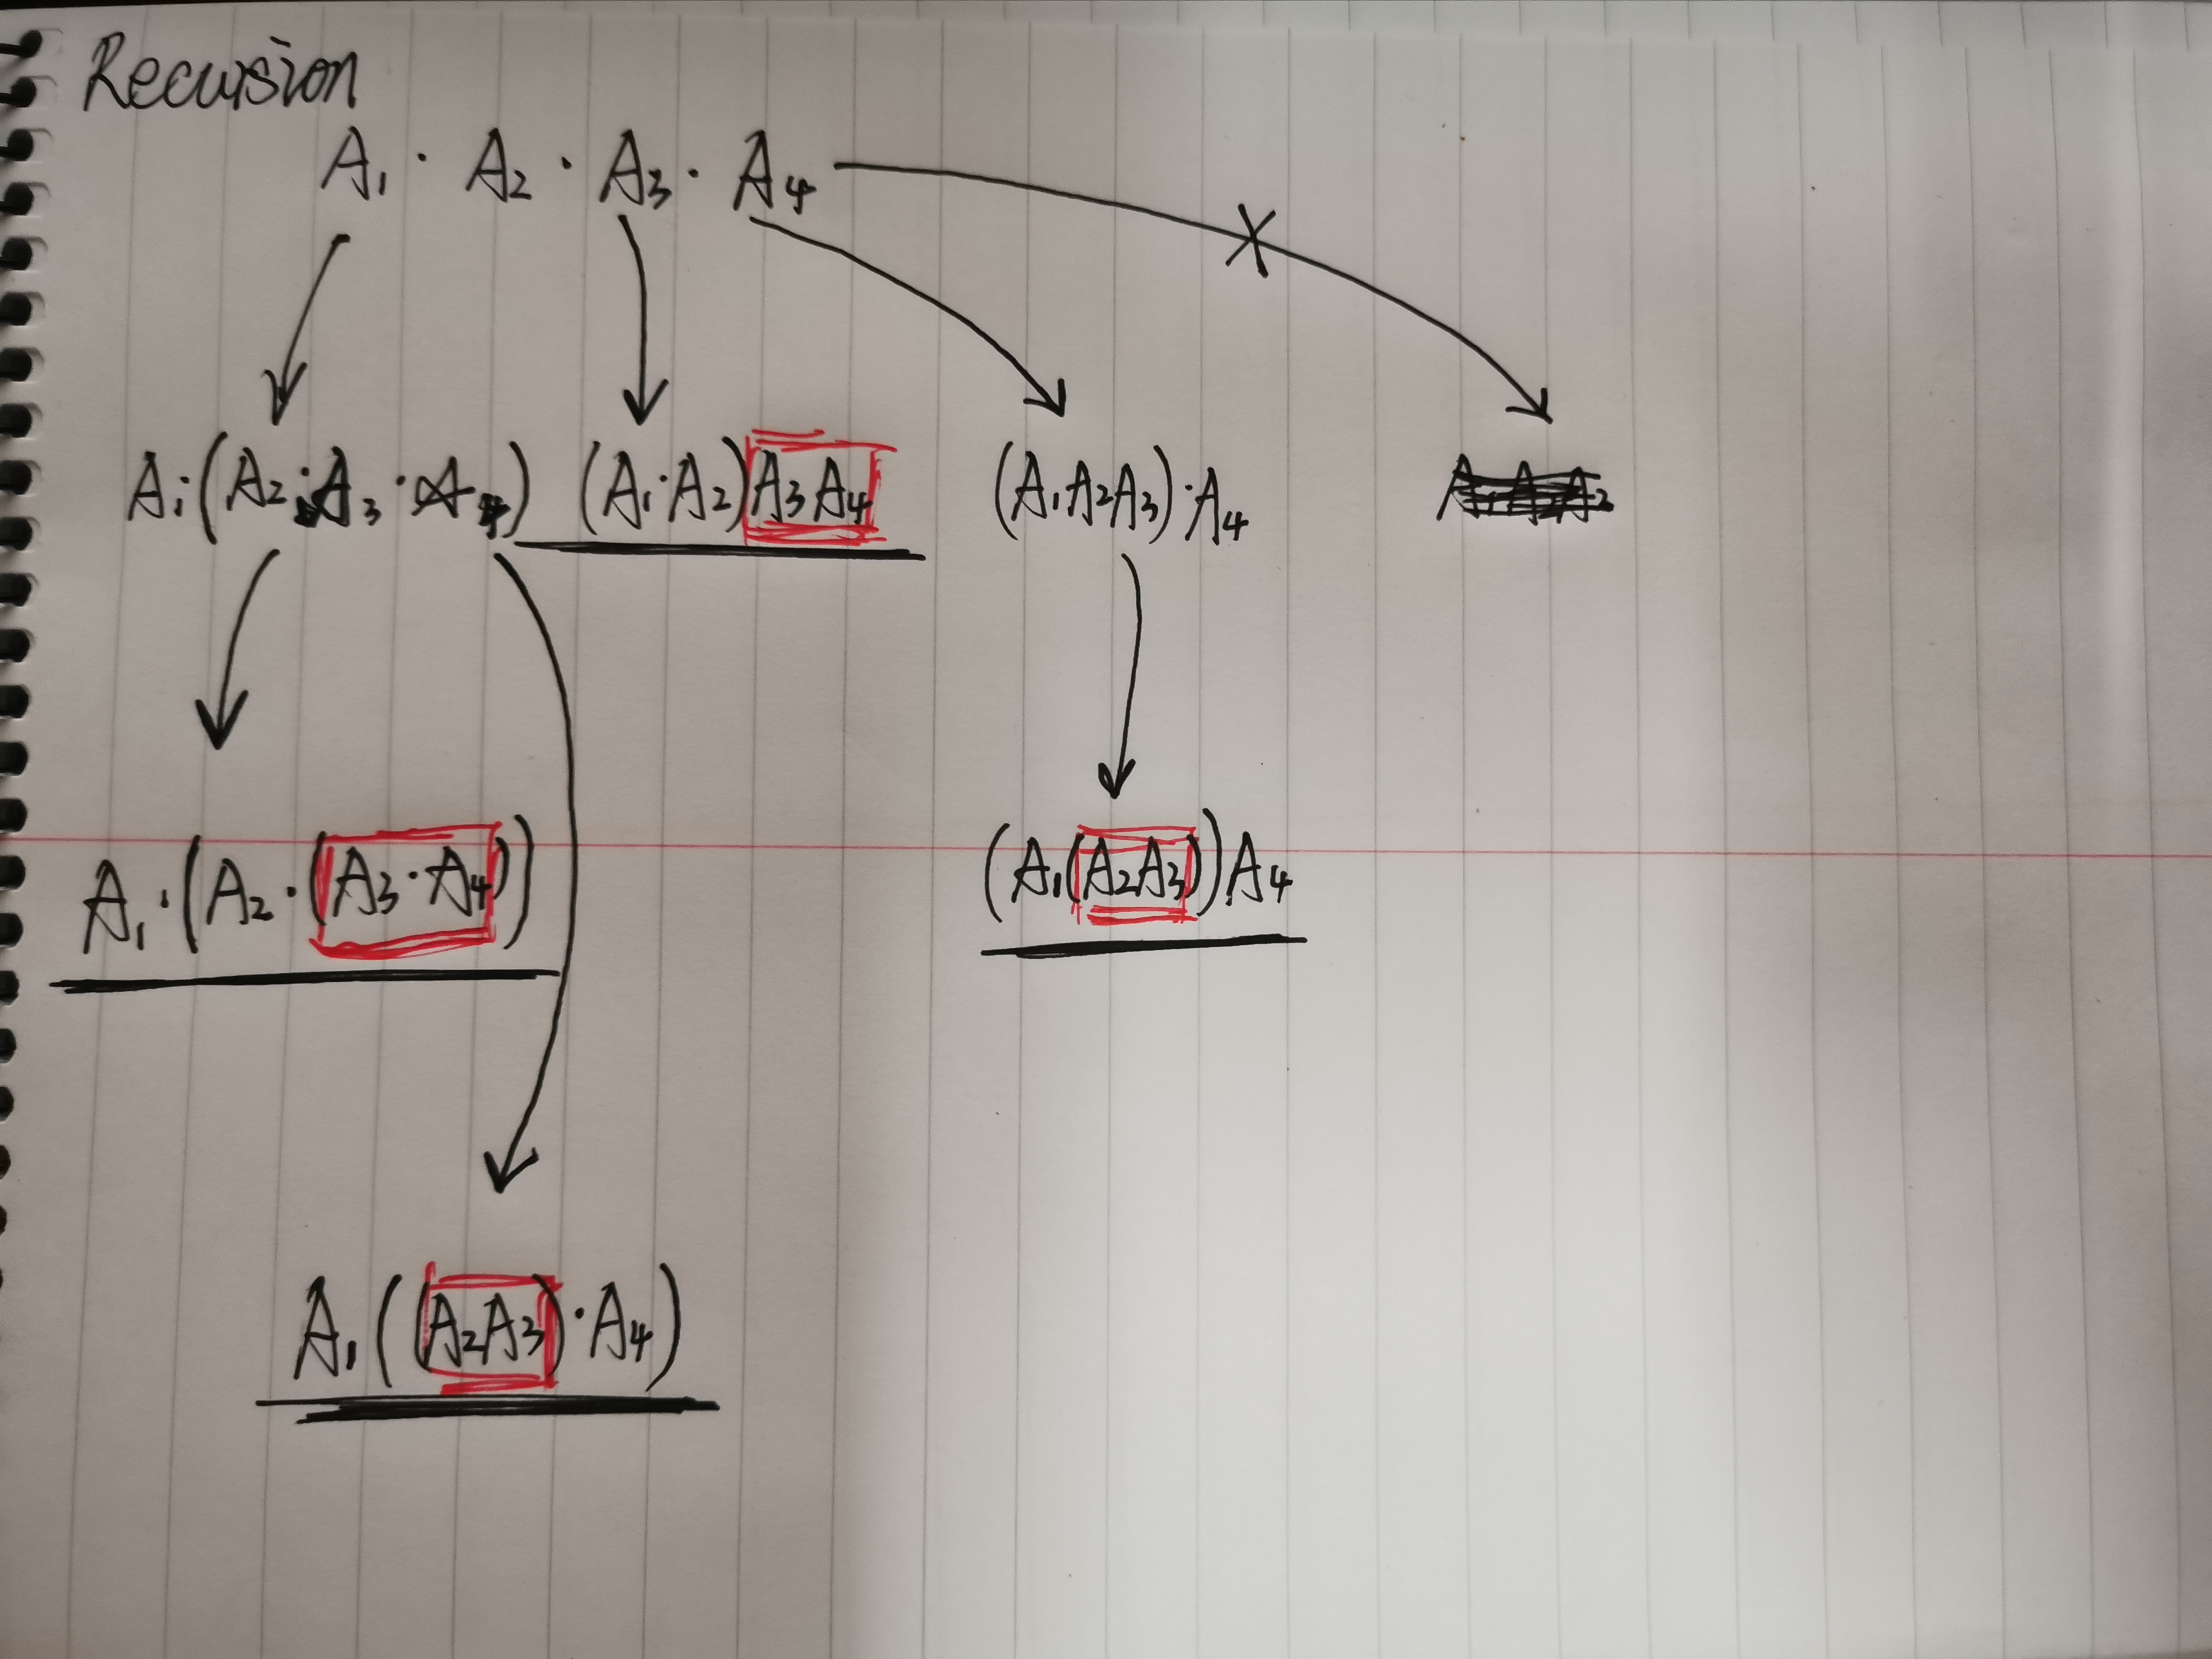 Recursion
A₁ · A₂ · A₃ · A₄
A₁·(A₂·A₃·A₄) (A₁·A₂)A₃A₄ (A₁A₂A₃)·A₄
A₁·(A₂·(A₃·A₄)) (A₁(A₂A₃))A₄
A₁((A₂A₃)·A₄)